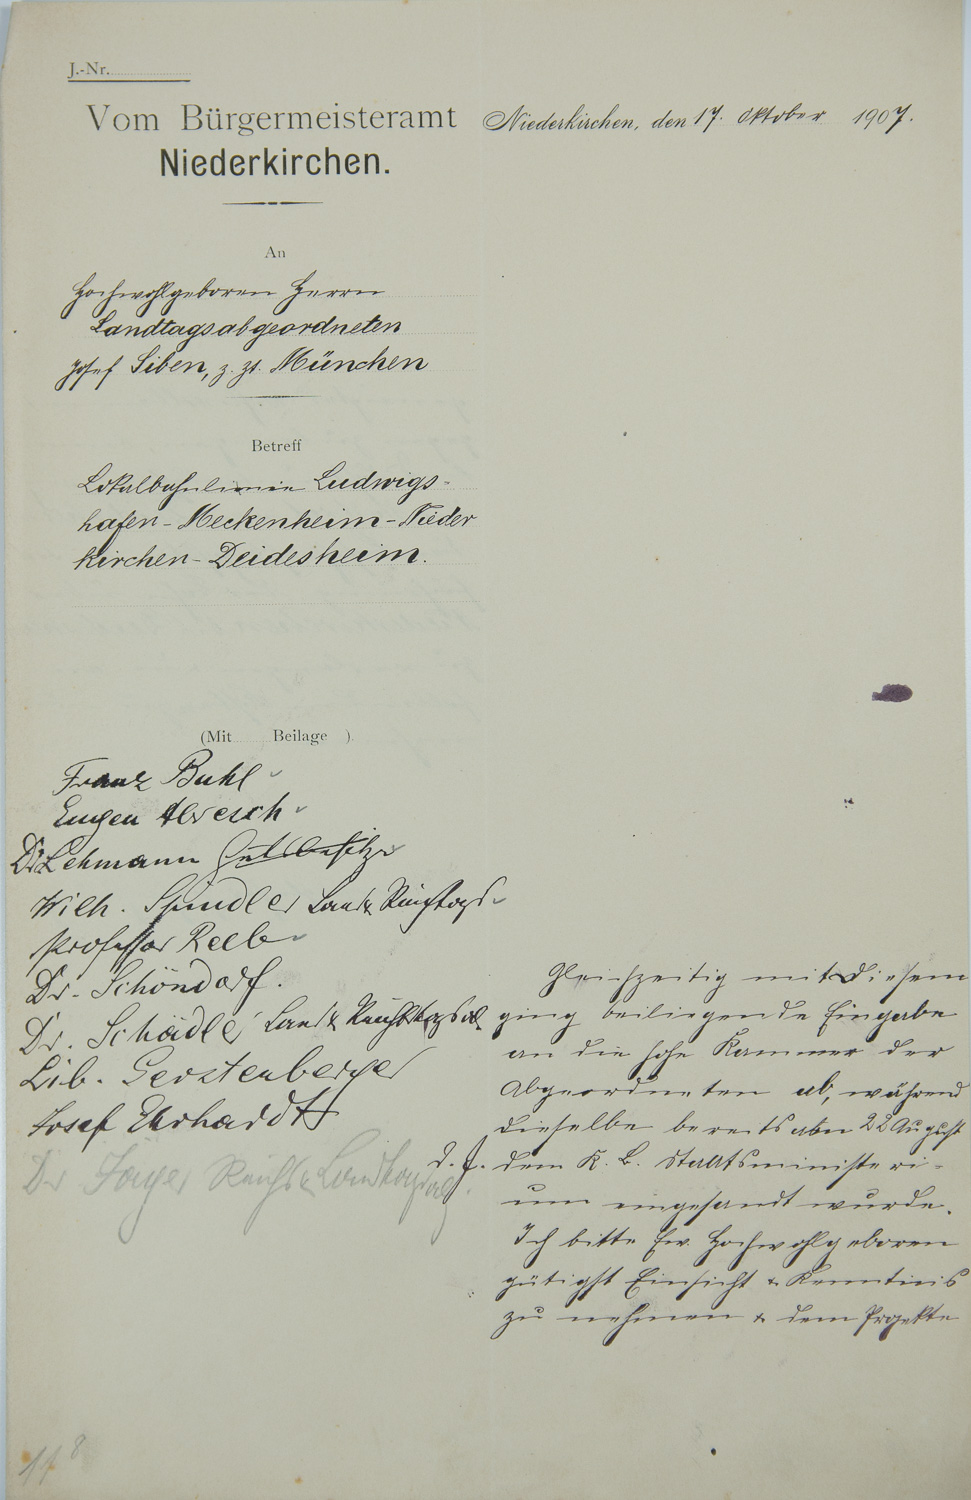 J.-Nr.
Vom Bürgermeisteramt
Niederkirchen.
Niederkirchen, den 17. Oktober 1907.
An
Hochwohlgeboren Herrn
Landtagsabgeordneten
Josef Siben, z. Zt. München
Betreff
Lokalbahnlinie Ludwigs-
hafen - Meckenheim - Nieder
kirchen - Deidesheim.
(Mit Beilage ).
Franz Buhl
Eugen Abresch
Dr Lehmann Gutsbesitzer
Wilh. Spindler Land &
Professor Reeb
Dr. Schöndorf.
Dr. Schädler Land &
Lib. Gerstenberger
Josef Ehrhardt
Dr Jäger Reichs & Landtagsabg.
Gleichzeitig mit Diesem
ging beiliegende Eingabe
an die hohe Kammer der
Abgeordneten ab, während
dieselbe bereits am 22 August
d. J. dem K. B. Staatsministeri-
um eingesandt wurde.
Ich bitte Ew. Hochwohlgeboren
gütigst Einsicht & Kenntnis
zu nehmen & dem Projekte
118